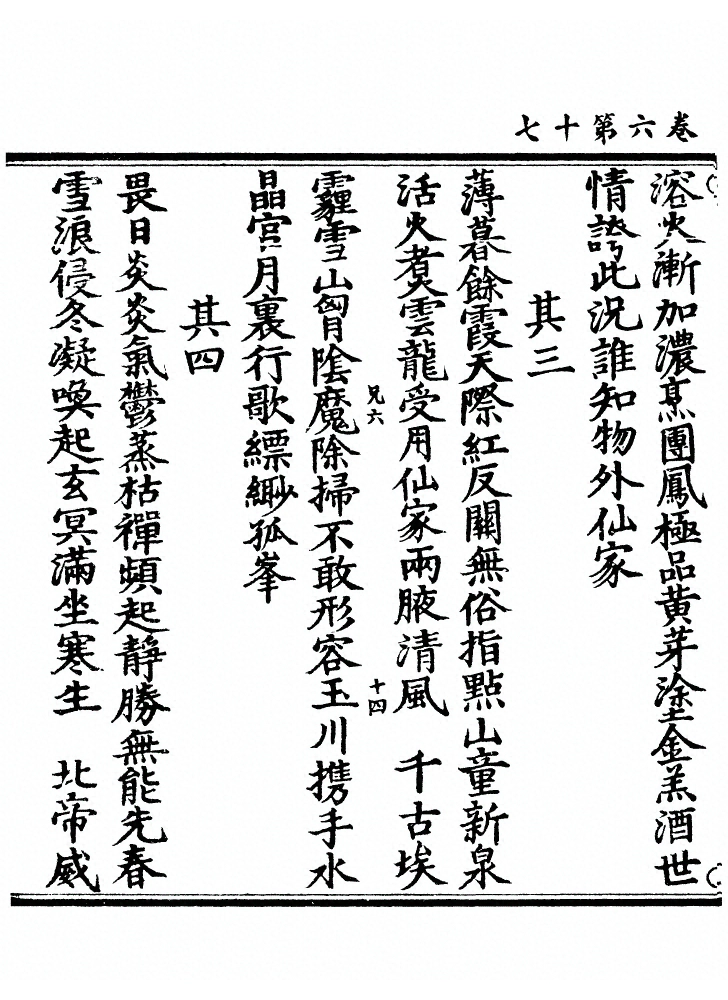 卷六第十七
溶火漸加濃烹團鳳極品黃芽塗金羔酒世
情誇此況誰知物外仙家
其三
薄暮餘霞天際紅反關無俗指點山童新泉
活火煮雲龍受用仙家兩腋清風　千古埃
霾雪山胷陰魔除掃不敢形容玉川攜手水
兄六
十四
晶宮月裏行歌縹緲孤峯
其四
畏日炎炎氣鬱蒸枯禪頻起靜勝無能先春
雪浪侵冬凝喚起玄冥滿坐寒生　北帝威